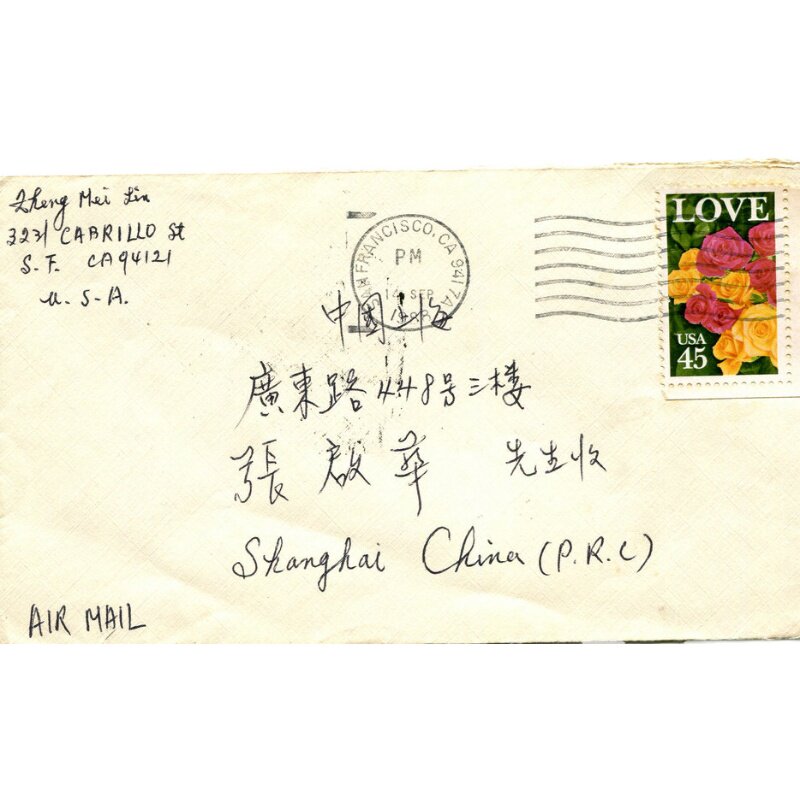 Zheng Mei Lin
3231 CABRILLO St
S. F. CA 94121
U. S. A.
SAN FRANCISCO, CA 941 7A
PM
14 SEP
1988
LOVE
USA
45
中國上海
廣東路448号三楼
張啟華 先生收
Shanghai China (P.R.C)
AIR MAIL